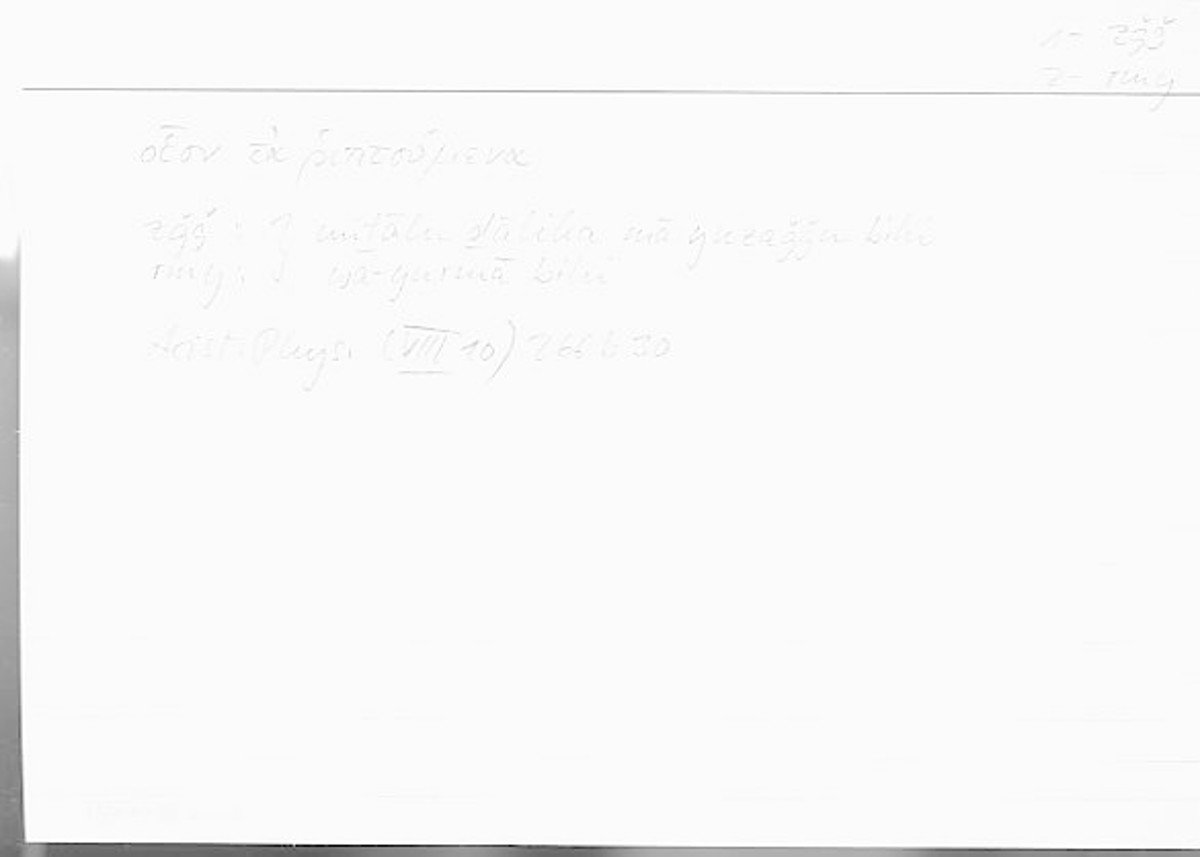 1- zǧǧ
2- rmy
οἷον τὰ ῥιπτούμενα
zǧǧ: } miṯālu ḏālika mā yuzaǧǧu bihī
rmy: } wa-yurmā bihī
Arist. Phys. (VIII 10) 266 b 30